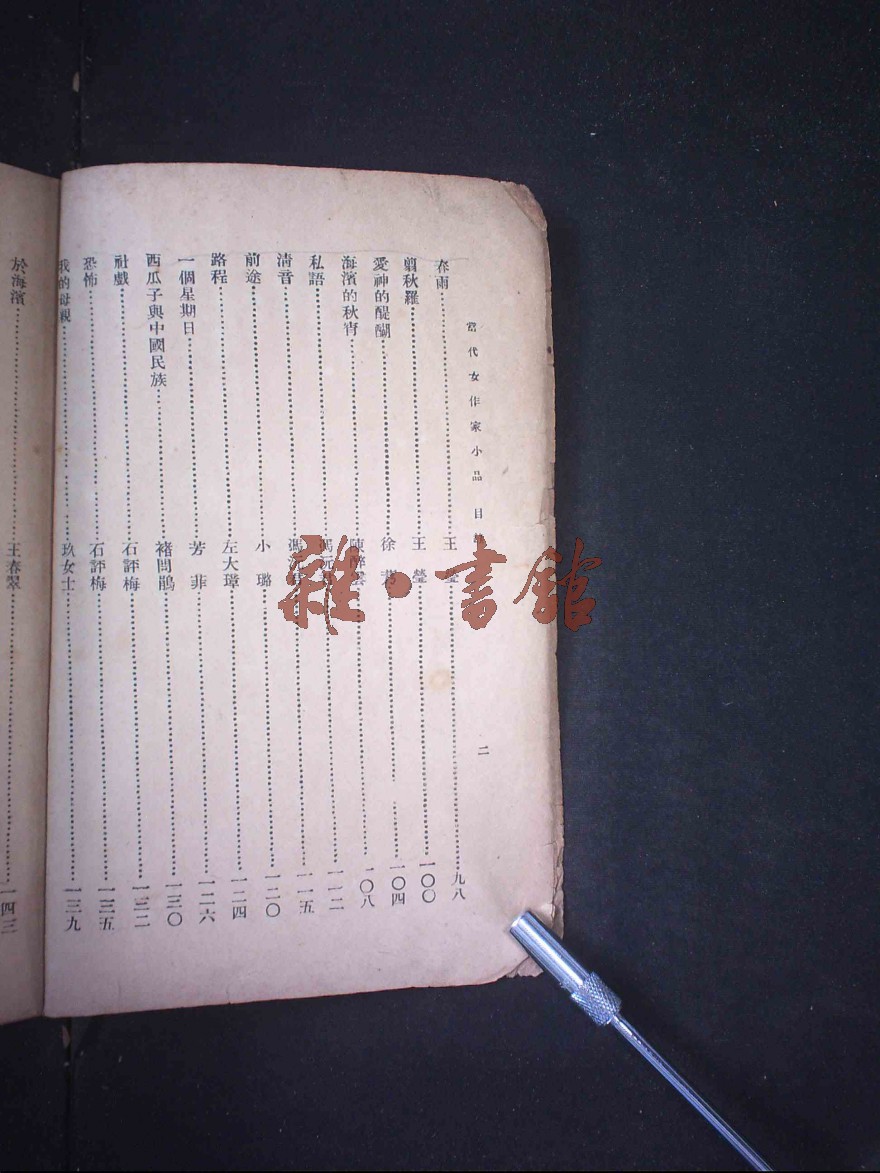 當代女作家小品 目 二
春雨……王 ……九八
翦秋羅……王 瑩……一〇〇
愛神的醍醐……徐 ……一〇四
海濱的秋宵……陳醉雲……一〇八
私語……馮沅……一一二
清音……馮沅……一一五
前途……小 璐……一二〇
路程……左大璋……一二四
一個星期日……芳 菲……一二六
西瓜子與中國民族……褚問鵑……一三〇
社戲……石評梅……一三二
恐怖……石評梅……一三五
我的母親……玖女士……一三九
於海濱……王春翠……一四三
雜·書館